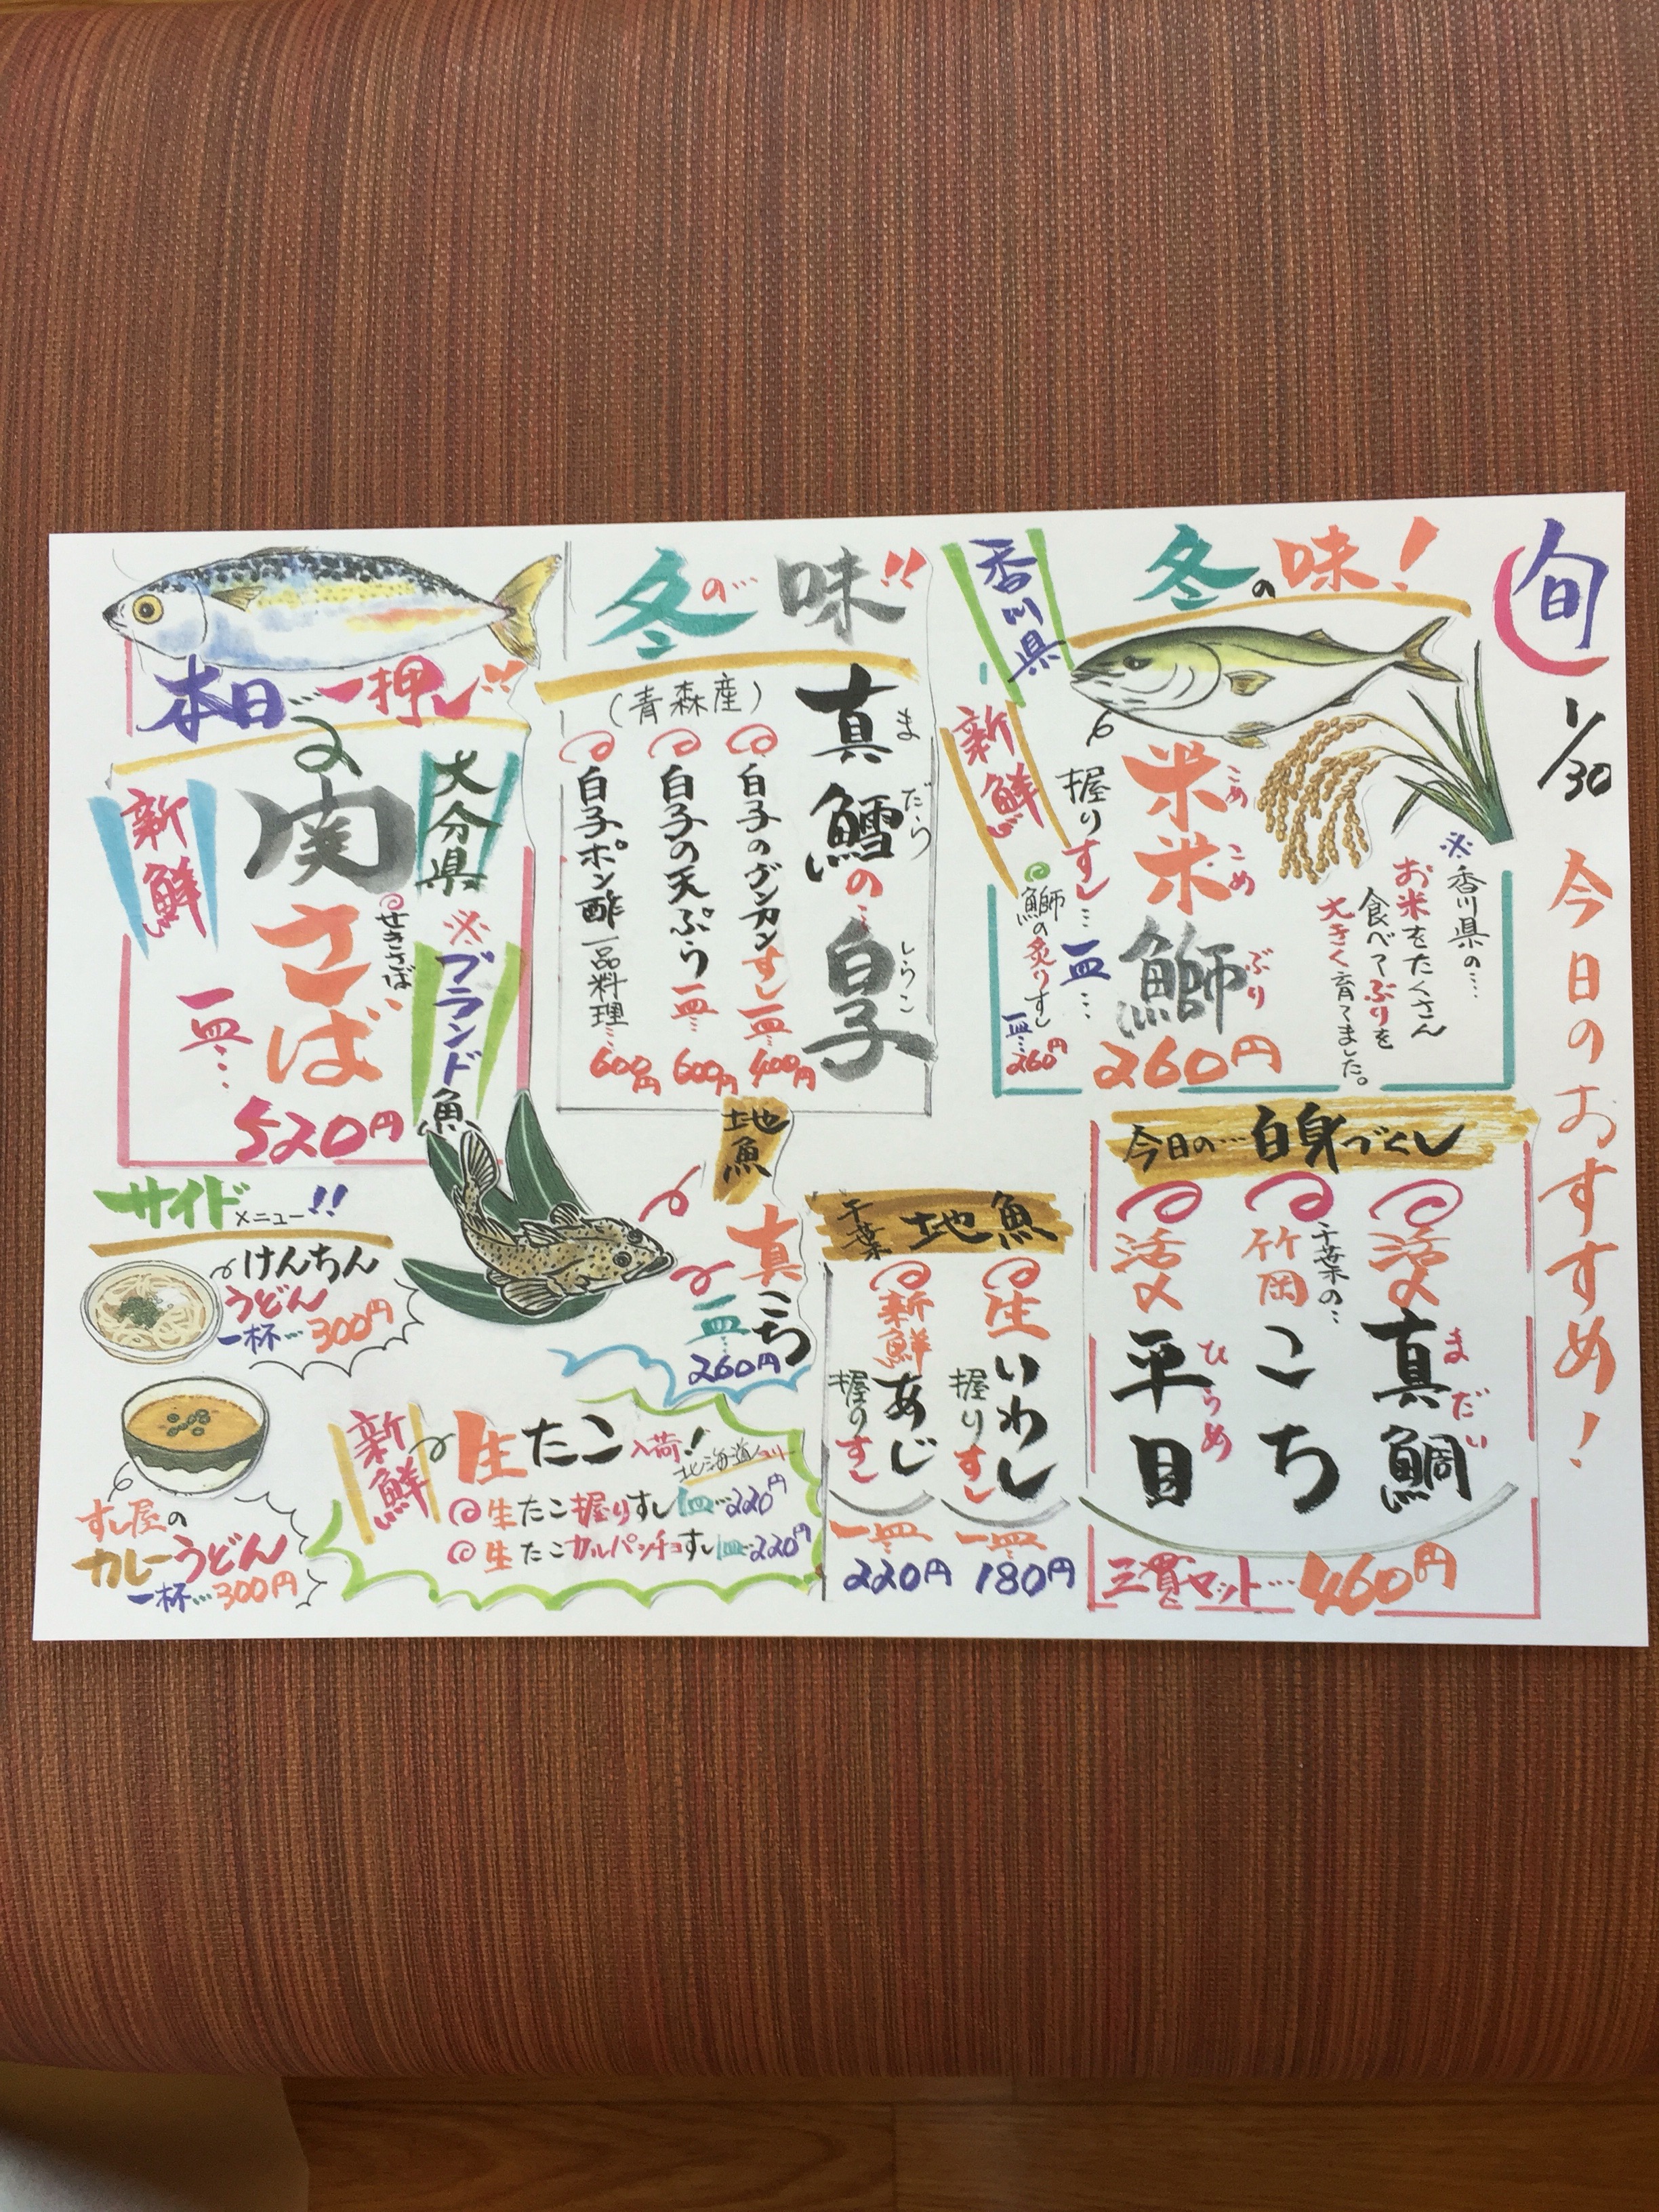 旬
1/30
今日のおすすめ!
冬の味!
香川県
新鮮
米米鰤
こめこめぶり
握りすし…一皿…
260円
鰤の炙りすし
一皿…260円
※香川県の…
お米をたくさん
食べてぶりを
大きく育てました。
冬の…味!!
真鱈の…白子
まだらしらこ
(青森産)
白子のグンカンすし一皿…400円
白子の天ぷら一皿…600円
白子ポン酢一品料理…600円
本日の一押し!!
大分県
関さば
せきさば
新鮮
※ブランド魚
一皿…
520円
今日の…白身づくし
活〆真鯛
まだい
千葉の…
竹岡こち
活〆平目
ひらめ
三貫セット…460円
千葉地魚
生いわし
握りすし
一皿…
180円
新鮮あじ
握りすし
一皿…
220円
地魚
真こち
一皿…
260円
サイドメニュー!!
けんちん
うどん
一杯…300円
すし屋の
カレーうどん
一杯…300円
新鮮
生たこ入荷!
北海道ヨリ
生たこ握りすし一皿…220円
生たこカルパッチョすし一皿…220円